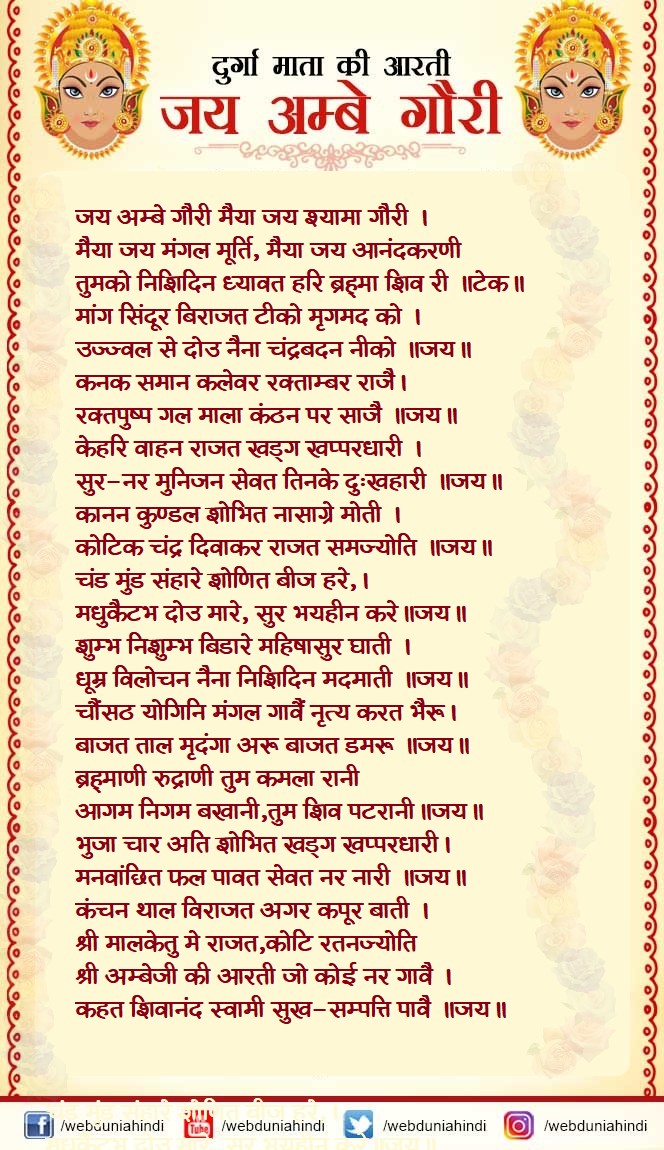 दुर्गा माता की आरती
जय अम्बे गौरी
जय अम्बे गौरी मैया जय श्यामा गौरी ।
मैया जय मंगल मूर्ति, मैया जय आनंदकरणी
तुमको निशिदिन ध्यावत हरि ब्रह्मा शिव री ॥टेक॥
मांग सिंदूर बिराजत टीको मृगमद को ।
उज्ज्वल से दोउ नैना चंद्रबदन नीको ॥जय॥
कनक समान कलेवर रक्ताम्बर राजै।
रक्तपुष्प गल माला कंठन पर साजै ॥जय॥
केहरि वाहन राजत खड्ग खप्परधारी ।
सुर-नर मुनिजन सेवत तिनके दुःखहारी ॥जय॥
कानन कुण्डल शोभित नासाग्रे मोती ।
कोटिक चंद्र दिवाकर राजत समज्योति ॥जय॥
चंड मुंड संहारे शोणित बीज हरे,।
मधुकैटभ दोउ मारे, सुर भयहीन करे॥जय॥
शुम्भ निशुम्भ बिडारे महिषासुर घाती ।
धूम्र विलोचन नैना निशिदिन मदमाती ॥जय॥
चौंसठ योगिनि मंगल गावैं नृत्य करत भैरू।
बाजत ताल मृदंगा अरू बाजत डमरू ॥जय॥
ब्रह्माणी रुद्राणी तुम कमला रानी
आगम निगम बखानी,तुम शिव पटरानी॥जय॥
भुजा चार अति शोभित खड्ग खप्परधारी।
मनवांछित फल पावत सेवत नर नारी ॥जय॥
कंचन थाल विराजत अगर कपूर बाती ।
श्री मालकेतु मे राजत,कोटि रतनज्योति
श्री अम्बेजी की आरती जो कोई नर गावै ।
कहत शिवानंद स्वामी सुख-सम्पत्ति पावै ॥जय॥
चंड मुंड संहारे शोणित बीज हरे, ।
f /webduniahindi You Tube /webduniahindi /webduniahindi /webduniahindi
मधुकैटभ दोउ मारे, सुर भयहीन करे ॥जय॥